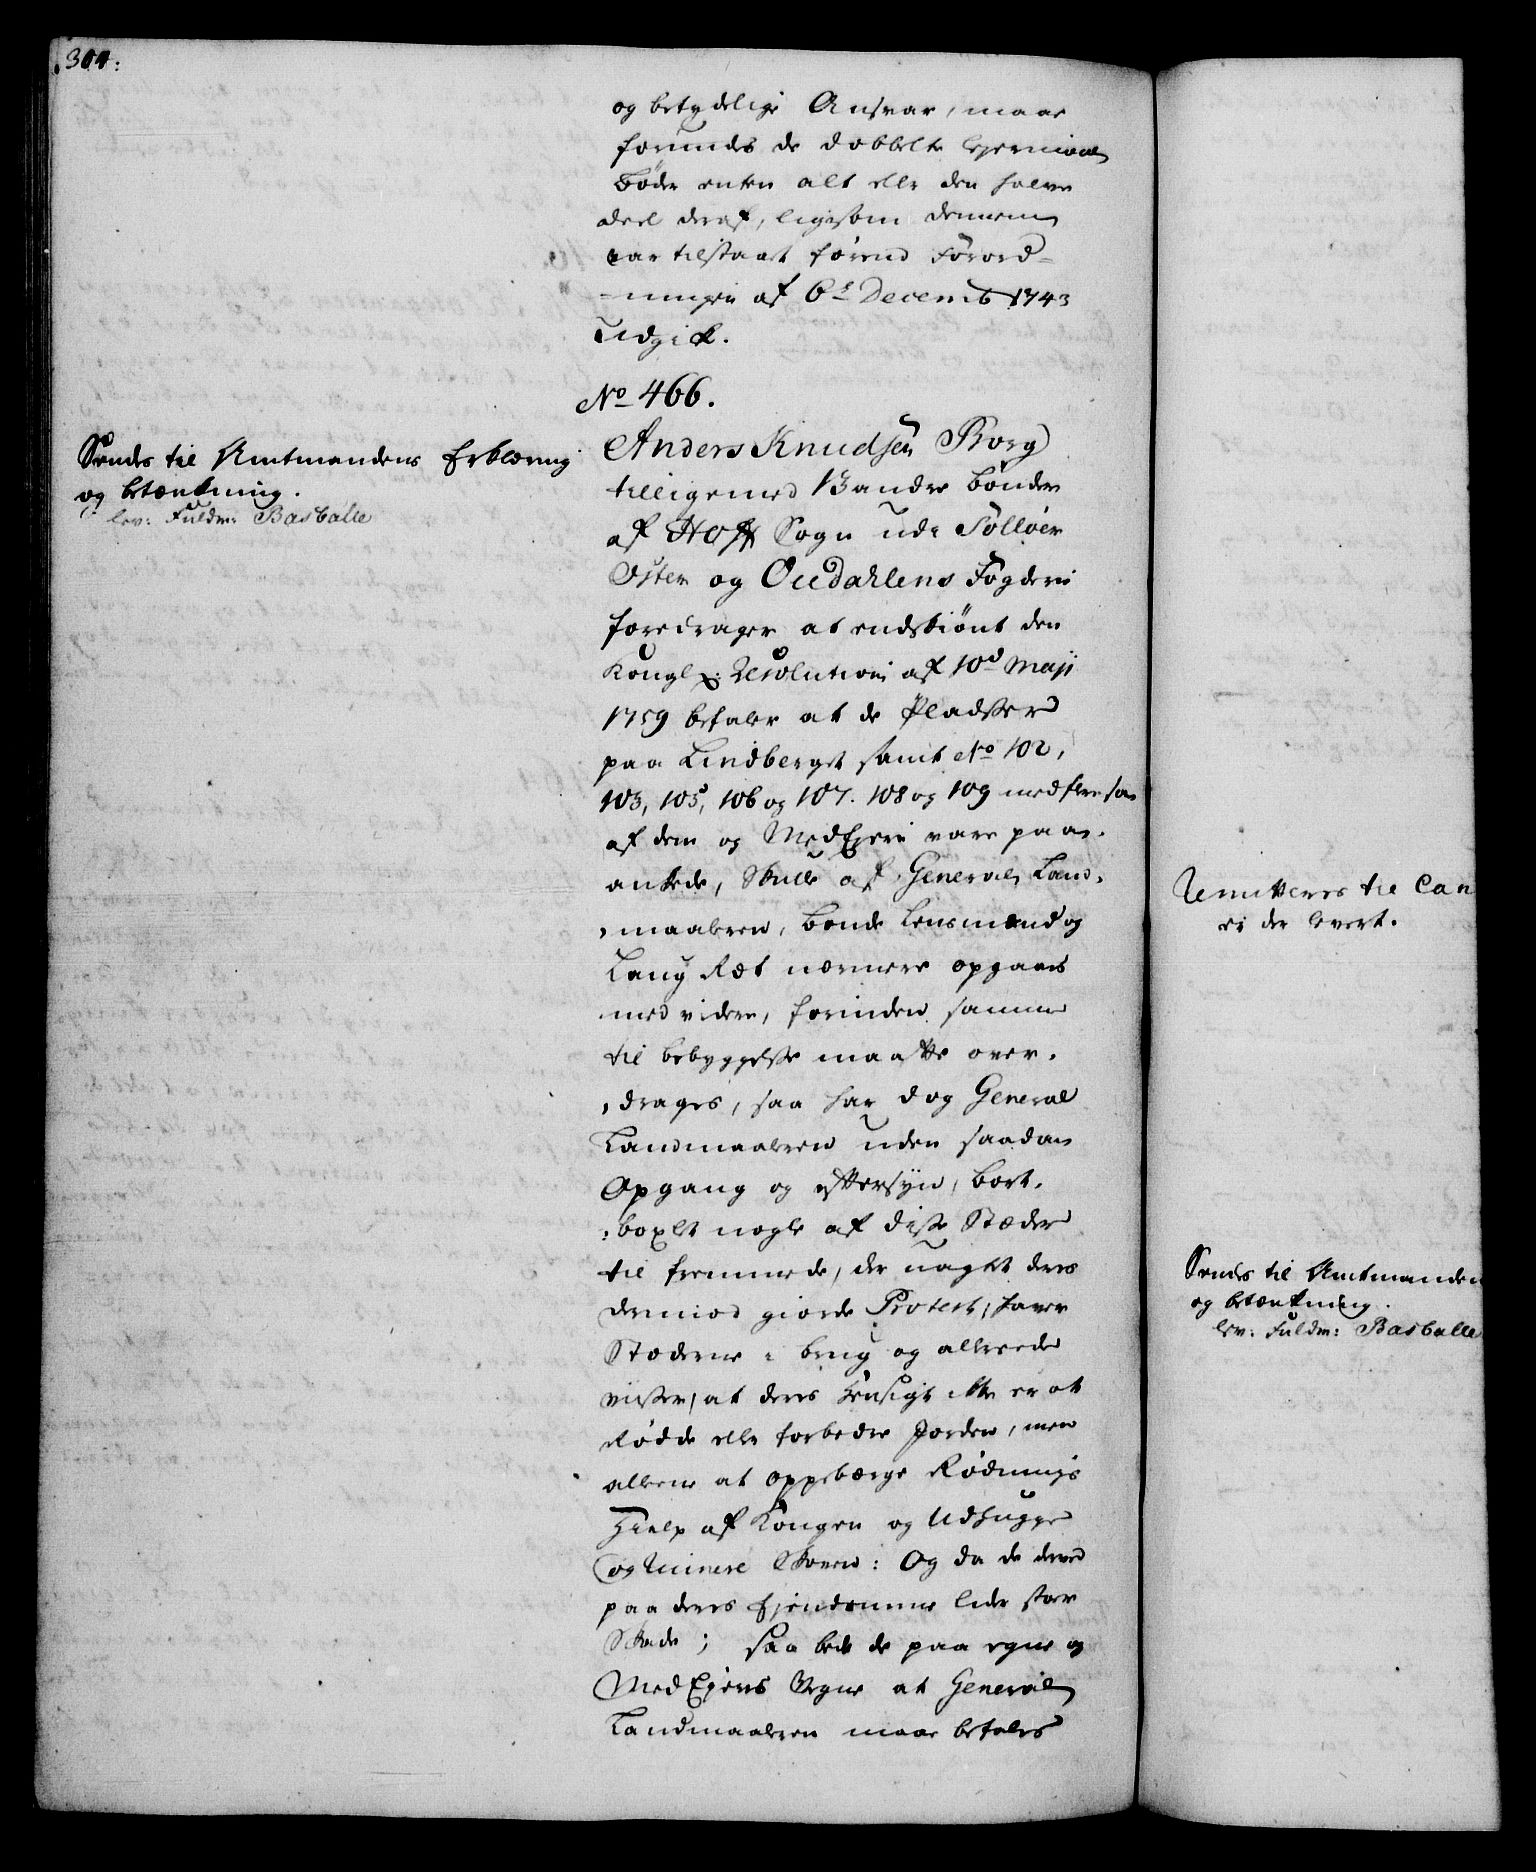 304:
og betydelige Ansvar, maae
forundes de dobbelte Lejermaals
Böder enten alt eller den halve
deel deraf, ligesom dennem
var tilstaaet förend Forord-
-ningen af 6te Decemb 1743
Udgik.
No 466.
Sendes til Amtmandens Erklæring
og betænkning.
lev: Fuldm: Basballe
Anders Knudsen Borg
tilligemed 13 andre Bönder
af Hoff Sogn udi Solløer
Öster og Oudahlens Fogderie
foredrager at endskiönt den
Kongl: Resolution af 10d Maji
1759 befaler at de Pladser
paa Lindberget samt No 102,
103, 105, 106 og 107. 108 og 109 med flere som
af dem og MedEjere vare paa-
ankede, Skulle af General Land-
-maaleren, Bonde Lensmand og
Laug Ræt nærmere opgaaes
med videre, forinden samme
til bebyggelse maatte over-
-drages, saa har dog General
Landmaaleren uden saadan
Opgang og eftersyn, bort-
-boxlet nogle af disse Stæder
til fremmede, der uagtet deres
derimod giorde Protest, haver
Stæderne i brug og allereede
viiser, at deres Hensigt ikke er at
Rödde eller forbedre Jorden, men
alleene at oppebærge Rödnings
Hielp af Kongen og Udhugge
og Ruinere Skoven: Og da de derved
paa deres Ejendomme lide stor
Skade; saa bede de paa egne og
MedEjeres Vegne at General
Landmaaleren maae befales
Remitteres til Can
er der levert.
Sendes til Amtmanden
og betænkning.
lev: Fuldm: Basballe